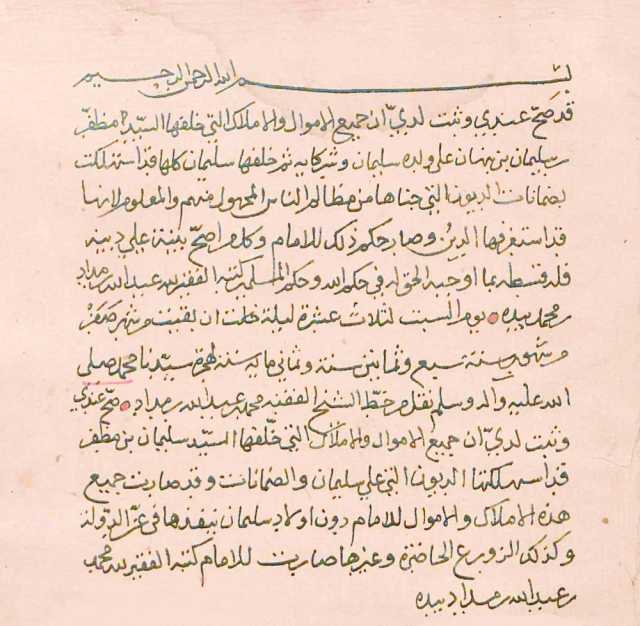 بسم الله الرحمن الرحيم
قد صح عندي وثبت لدي ان جميع الاموال والاملاك التي خلفها السيد مظفر
بن سليمان بن نبهان على ولده سليمان وشركايه ثم خلفها سليمان كلها قد استهلكت
بضمانات الديون التي جناها من مظالم الناس المجهول منهم والمعلوم لانها
قد استغرقها الدين وصار حكم ذلك للامام وكل من اصح بينة على دينه
فله قسطه بما اوجبه الحق له في حكم الله وحكم المسلمين كتبه الفقير لله عبد الله بن مداد
بن محمد بيده يوم السبت لثلاث عشرة ليلة خلت ان بقيت من شهر صفر
من شهور سنة سبع وثمانين سنة وثماني ماية سنة لهجرة سيدنا محمد صلى
الله عليه واله وسلم نقل من خط الشيخ الفقيه محمد بن عبد الله بن مداد صح عندي
وثبت لدي ان جميع الاموال والاملاك التي خلفها السيد سليمان بن مظفر
قد استهلكتها الديون التي على سليمان والضمانات وقد صارت جميع
هذه الاملاك والاموال للامام دون اولاد سليمان ينفذها في عز الدولة
وكذلك الزروع الحاضرة وغيرها صارت للامام كتبه الفقير لله محمد
بن عبد الله بن مداد بيده